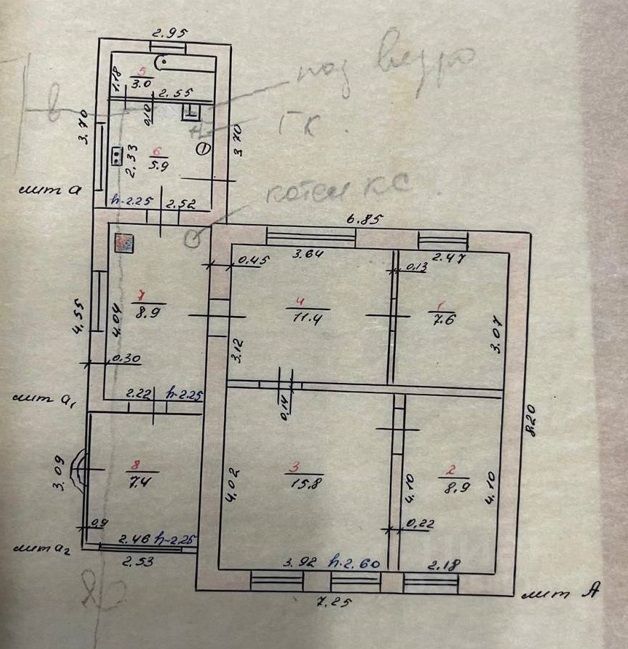 2.95
1.18
5
3.0
2.55
под ведро
в
ГК.
3.70
0.10
2.33
6
5.9
3.70
лит а
h-2.25
2.52
котел КС.
6.85
3.64
2.47
0.45
0.13
7
8.9
4
11.4
1
7.6
4.55
4.04
3.12
3.07
0.30
2.22
h-2.25
лит а₁
0.14
8.20
3.09
8
7.4
4.02
3
15.8
4.10
2
8.9
4.10
0.9
0.22
2.46
h-2.25
лит а₂
2.53
3.92
h-2.60
2.18
7.25
лит А